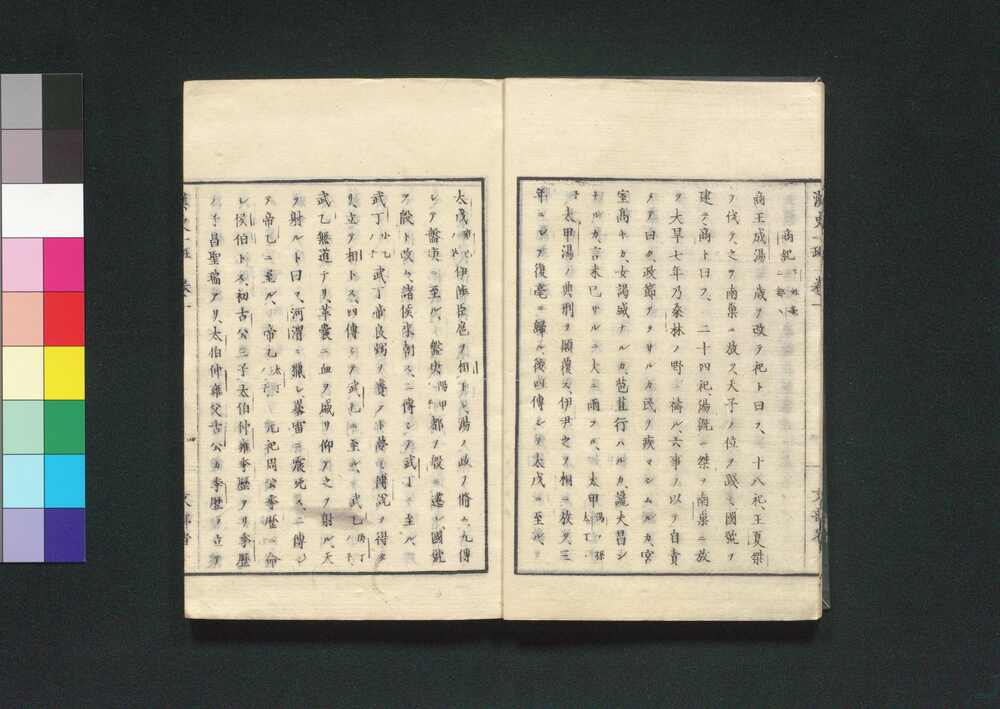 商紀
商王成湯一歳ヲ改テ祀ト曰フ、十八祀、王夏桀
ヲ伐テ、之ヲ南巣ニ放ツ、天子ノ位ヲ踐ミ國號ヲ
建テ商ト曰フ、二十四祀、湯既ニ桀ヲ南巣ニ放
ツ大旱七年乃桑林ノ野ニ禱ル、六事ヲ以テ自責
メテ曰ク、政節アラサルカ、民ヲ疾マシムルカ、宮
室髙キカ、女謁盛ナルカ、苞苴行ハルカ、讒夫昌ン
ナルカ、言未已サルニ大ニ雨フル、太甲湯ノ孫太丁ノ子
太甲湯ノ典刑ヲ顚覆ス、伊尹之ヲ桐ニ放ツ、三
年ニシテ復亳ニ歸ル、後四傳シテ太戊ニ至ル、
太戊伊陟臣扈ヲ相トシ、湯ノ政ヲ脩ム、九傳
シテ盤庚ニ至ル、盤庚陽甲都ヲ殷ニ遷シ、國號
ヲ殷ト改ム、諸侯來朝ス、二傳シテ武丁ニ至ル、
武丁小乙ノ子武丁帝良弼ヲ賚フト夢ミ傅説ヲ得タ
リ、立テ相トス、四傳シテ武乙ニ至ル、武乙庚丁
武乙無道ナリ、革嚢ニ血ヲ盛リ仰テ之ヲ射ル、天
ヲ射ルト曰フ、河渭ニ獵シ暴雷ニ震死ス、二傳シ
テ帝乙ニ至ル、帝乙太丁ノ子元祀周公季歴ニ命
シ侯伯トス、初古公三子太伯仲雍季歴アリ季歴
ノ子昌聖瑞アリ、太伯仲雍父古公カ季歴ヲ立テ
漢史一班 卷一
四
文部省